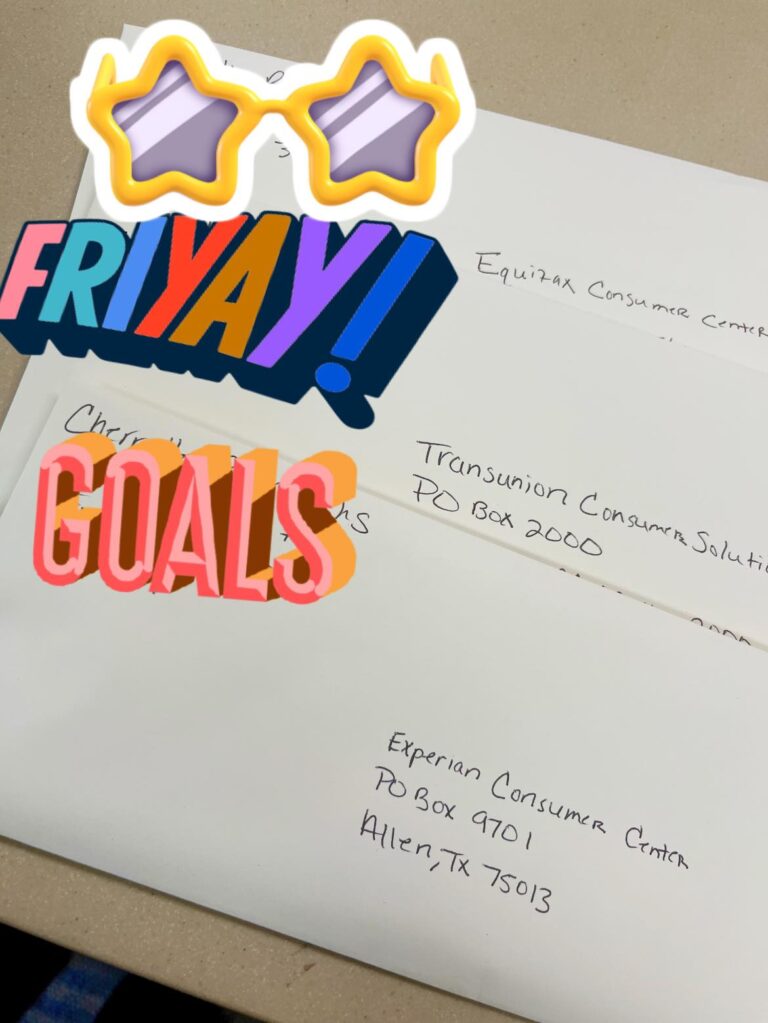 FRIYAY!
GOALS
Equifax Consumer Center
Transunion Consumer Solutio
PO Box 2000
Experian Consumer Center
PO Box 9701
Allen, Tx 75013